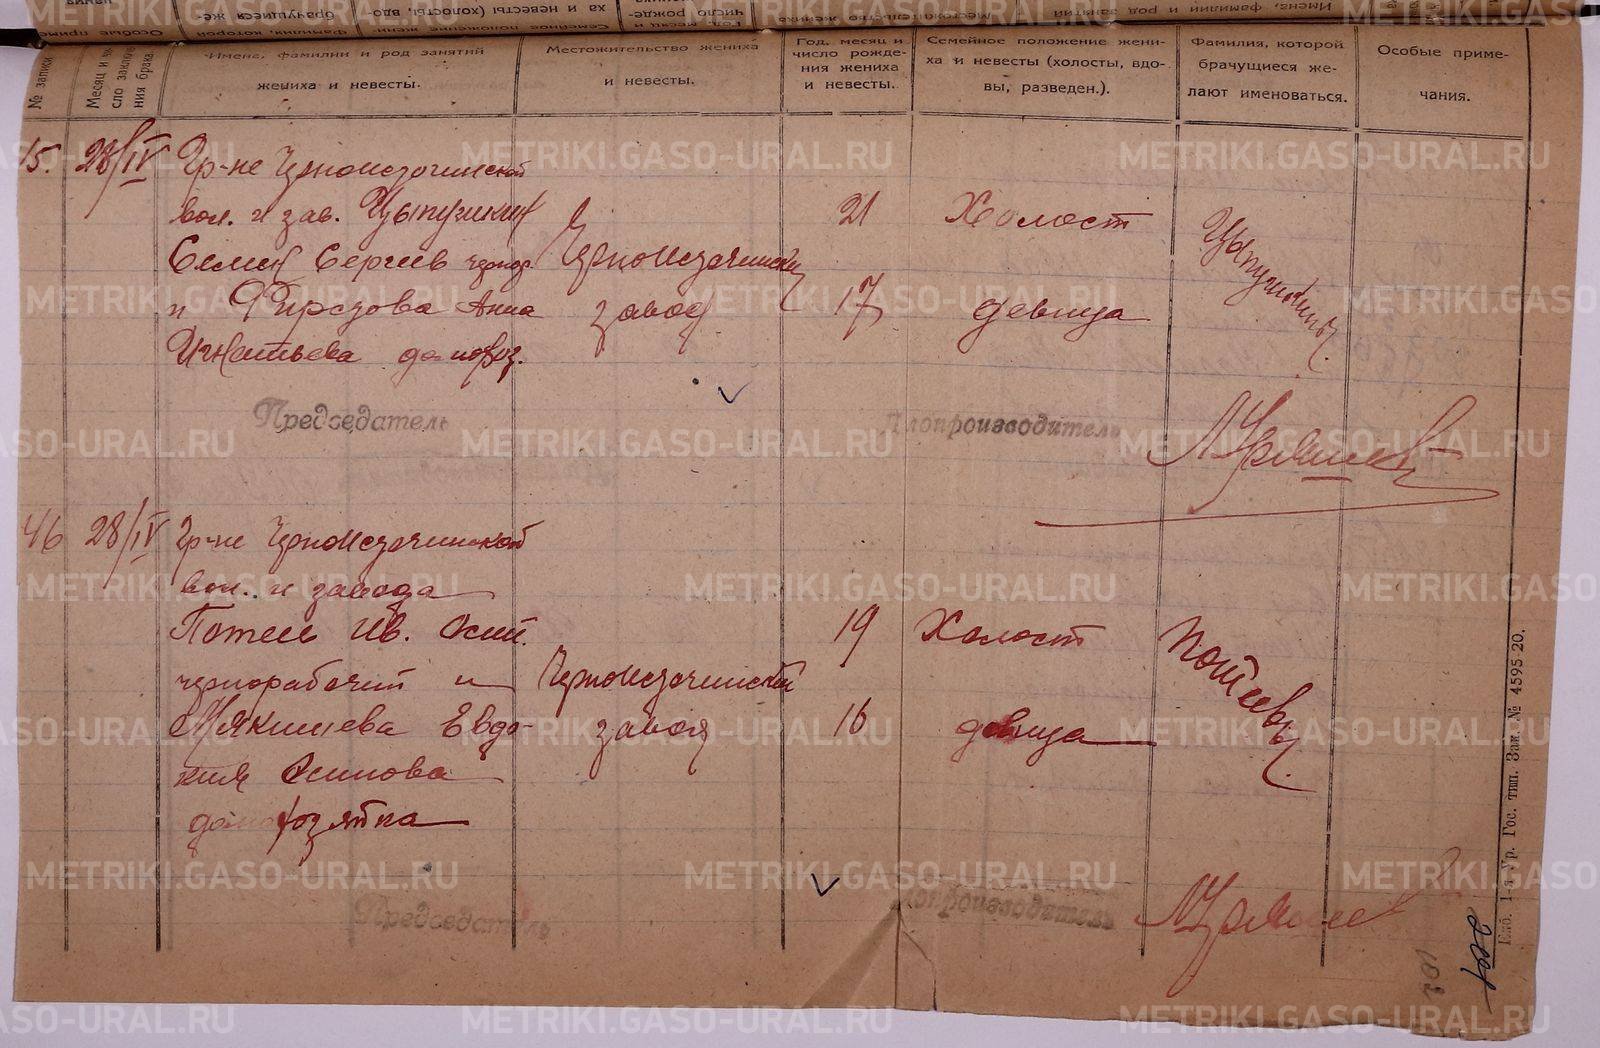 № записи
Месяц и чи-
сло заключе-
ния брака.
Имена, фамилии и род занятий
жениха и невесты.
Местожительство жениха
и невесты.
Год, месяц и
число рожде-
ния жениха
и невесты.
Семейное положение жени-
ха и невесты (холосты, вдо-
вы, разведен.).
Фамилия, которой
брачущиеся же-
лают именоваться.
Особые приме-
чания.
15. 28/IV Гр-не Черноисточинской
вол. и зав.
Семен Сергеев чернор.
и Фирсова Анна
Игнатьева домохоз.
Черноисточинский
завод
21
17
Холост
девица
Председатель
Делопроизводитель
46 28/IV Гр-не Черноисточинской
вол. и завода
Потеев Ив. Осип.
чернорабочий и
Мякишева Евдо-
кия Осипова
домохозяйка
Черноисточинский
завод
19
16
Холост
девица
Потеевы.
Председатель
Делопроизводитель
Екб. 1-я Ур. Гос. тип. Зак. № 4595-20.
102
METRIKI.GASO-URAL.RU